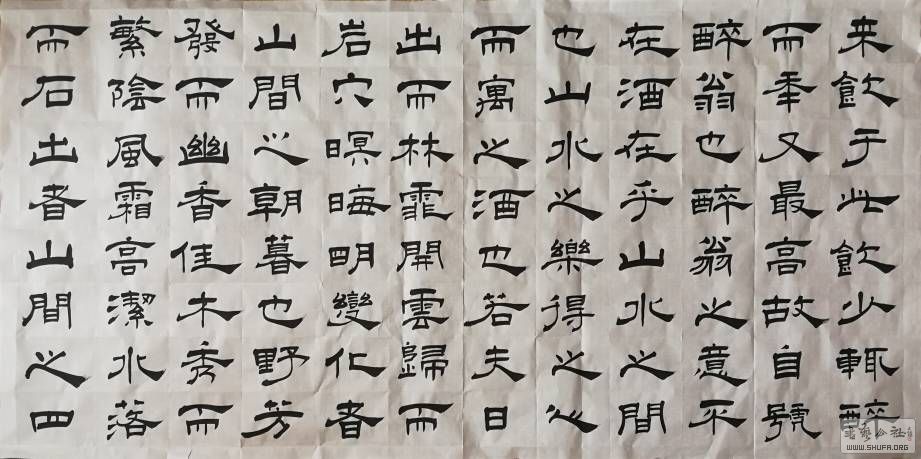 来飲于此飲少輒醉
而年又最高故自號
醉翁也醉翁之意不
在酒在乎山水之間
也山水之樂得之心
而寓之酒也若夫日
出而林霏開雲歸而
岩穴暝晦明變化者
山間之朝暮也野芳
發而幽香佳木秀而
繁陰風霜高潔水落
而石出者山間之四
書藝公社
WWW.SHUFA.ORG